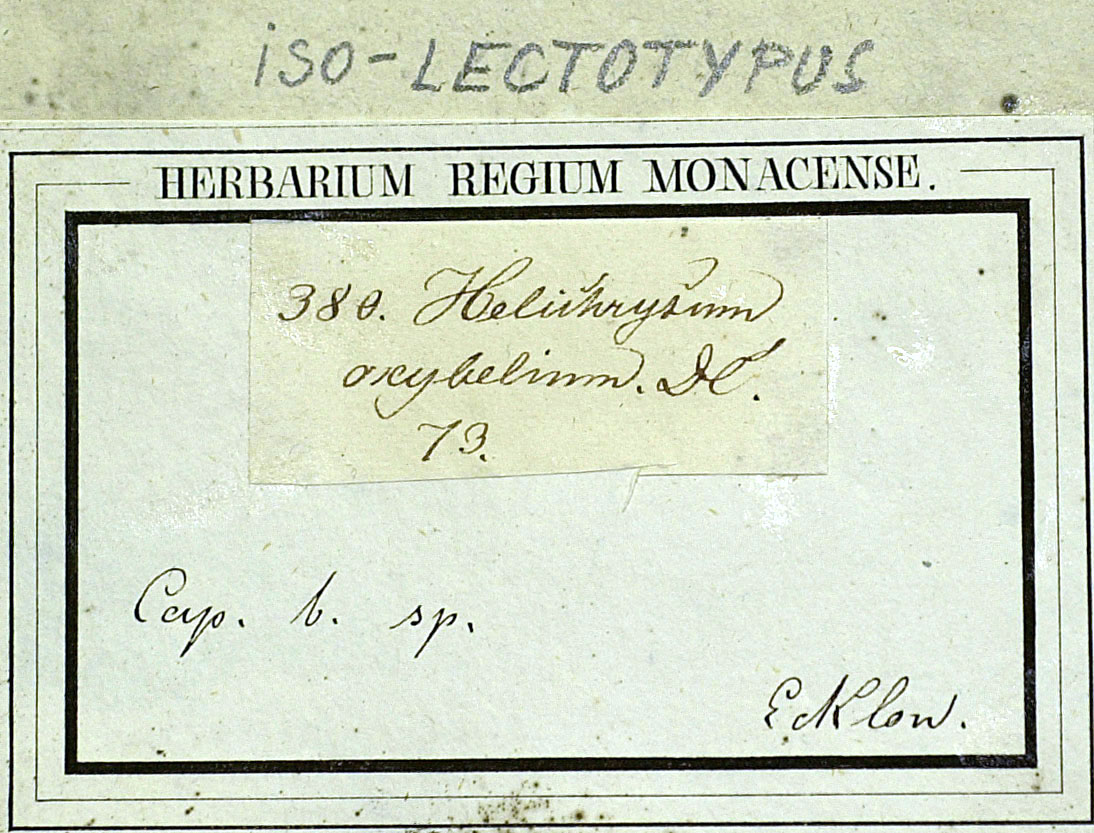 ISO-LECTOTYPUS
HERBARIUM REGIUM MONACENSE.
380. Helichrysum
oxybelium. DC.
73.
Cap. b. sp.
Ecklon.